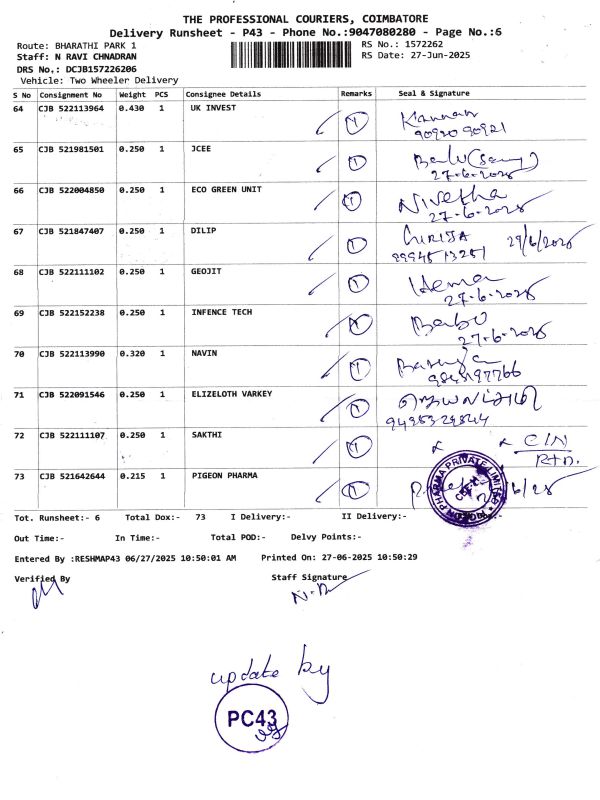 THE PROFESSIONAL COURIERS, COIMBATORE
Delivery Runsheet - P43 - Phone No.:9047080280 - Page No.:6
Route: BHARATHI PARK 1 RS No.: 1572262
Staff: N RAVI CHNADRAN RS Date: 27-Jun-2025
DRS No.: DCJB157226206
Vehicle: Two Wheeler Delivery
S No Consignment No Weight PCS Consignee Details Remarks Seal & Signature
64 CJB 522113964 0.430 1 UK INVEST 1 Kannan
90920 90921
65 CJB 521981501 0.250 1 JCEE 1
27-6-2025
66 CJB 522004850 0.250 1 ECO GREEN UNIT 1 Nivetha
27-6-2025
67 CJB 521847407 0.250 1 DILIP 1 GIRIJA
68 CJB 522111102 0.250 1 GEOJIT 1 Hema
27-6-2025
69 CJB 522152238 0.250 1 INFENCE TECH 1 Babu
27-6-2025
70 CJB 522113990 0.320 1 NAVIN 1
71 CJB 522091546 0.250 1 ELIZELOTH VARKEY 1
72 CJB 522111107 0.250 1 SAKTHI 1
RTD.
73 CJB 521642644 0.215 1 PIGEON PHARMA 1
PHARMA PRIVATE LIMITED
Tot. Runsheet:- 6 Total Dox:- 73 I Delivery:- II Delivery:-
Out Time:- In Time:- Total POD:- Delvy Points:-
Entered By :RESHMAP43 06/27/2025 10:50:01 AM Printed On: 27-06-2025 10:50:29
Verified By Staff Signature
N.R
update by
PC43